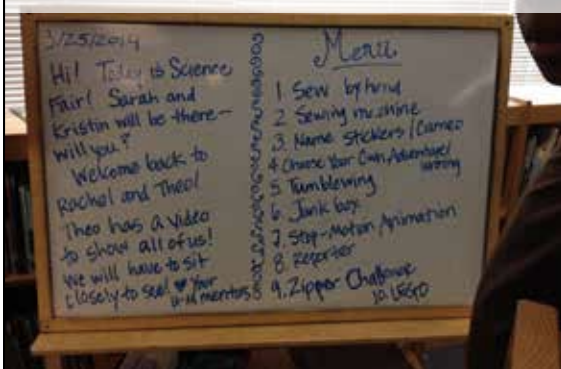 3/25/2014
Hi! Today is Science
Fair! Sarah and
Kristin will be there—
will you?
Welcome back to
Rachel and Theo!
Theo has a video
to show all of us!
We will have to sit
closely to see! ♥ Your
U-M mentors
Menu
1 Sew by hand
2 Sewing machine
3. Name Stickers / Cameo
4 Choose Your Own Adventure/
Writing
5 Tumblewing
6. Junk box
7. Stop-Motion Animation
8. Reporter
9. Zipper Challenge
10. LEGO